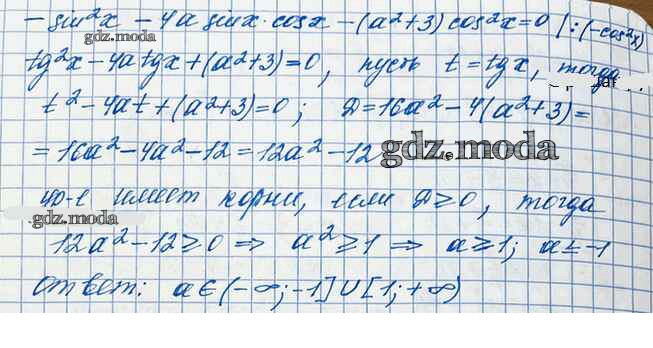 - sin²x - 4a sinx·cosx - (a²+3) cos²x=0 |:(-cos²x)
gdz.moda
tg²x - 4a tgx + (a²+3) = 0, пусть t = tgx, тогда
t² - 4at + (a²+3) = 0; D = 16a² - 4(a²+3) =
= 16a² - 4a² - 12 = 12a² - 12
gdz.moda
ур-е имеет корни, если D ≥ 0, тогда
gdz.moda
12a² - 12 ≥ 0 ⇒ a² ≥ 1 ⇒ a ≥ 1; a ≤ -1
Ответ: a ∈ (-∞; -1] ∪ [1; +∞)